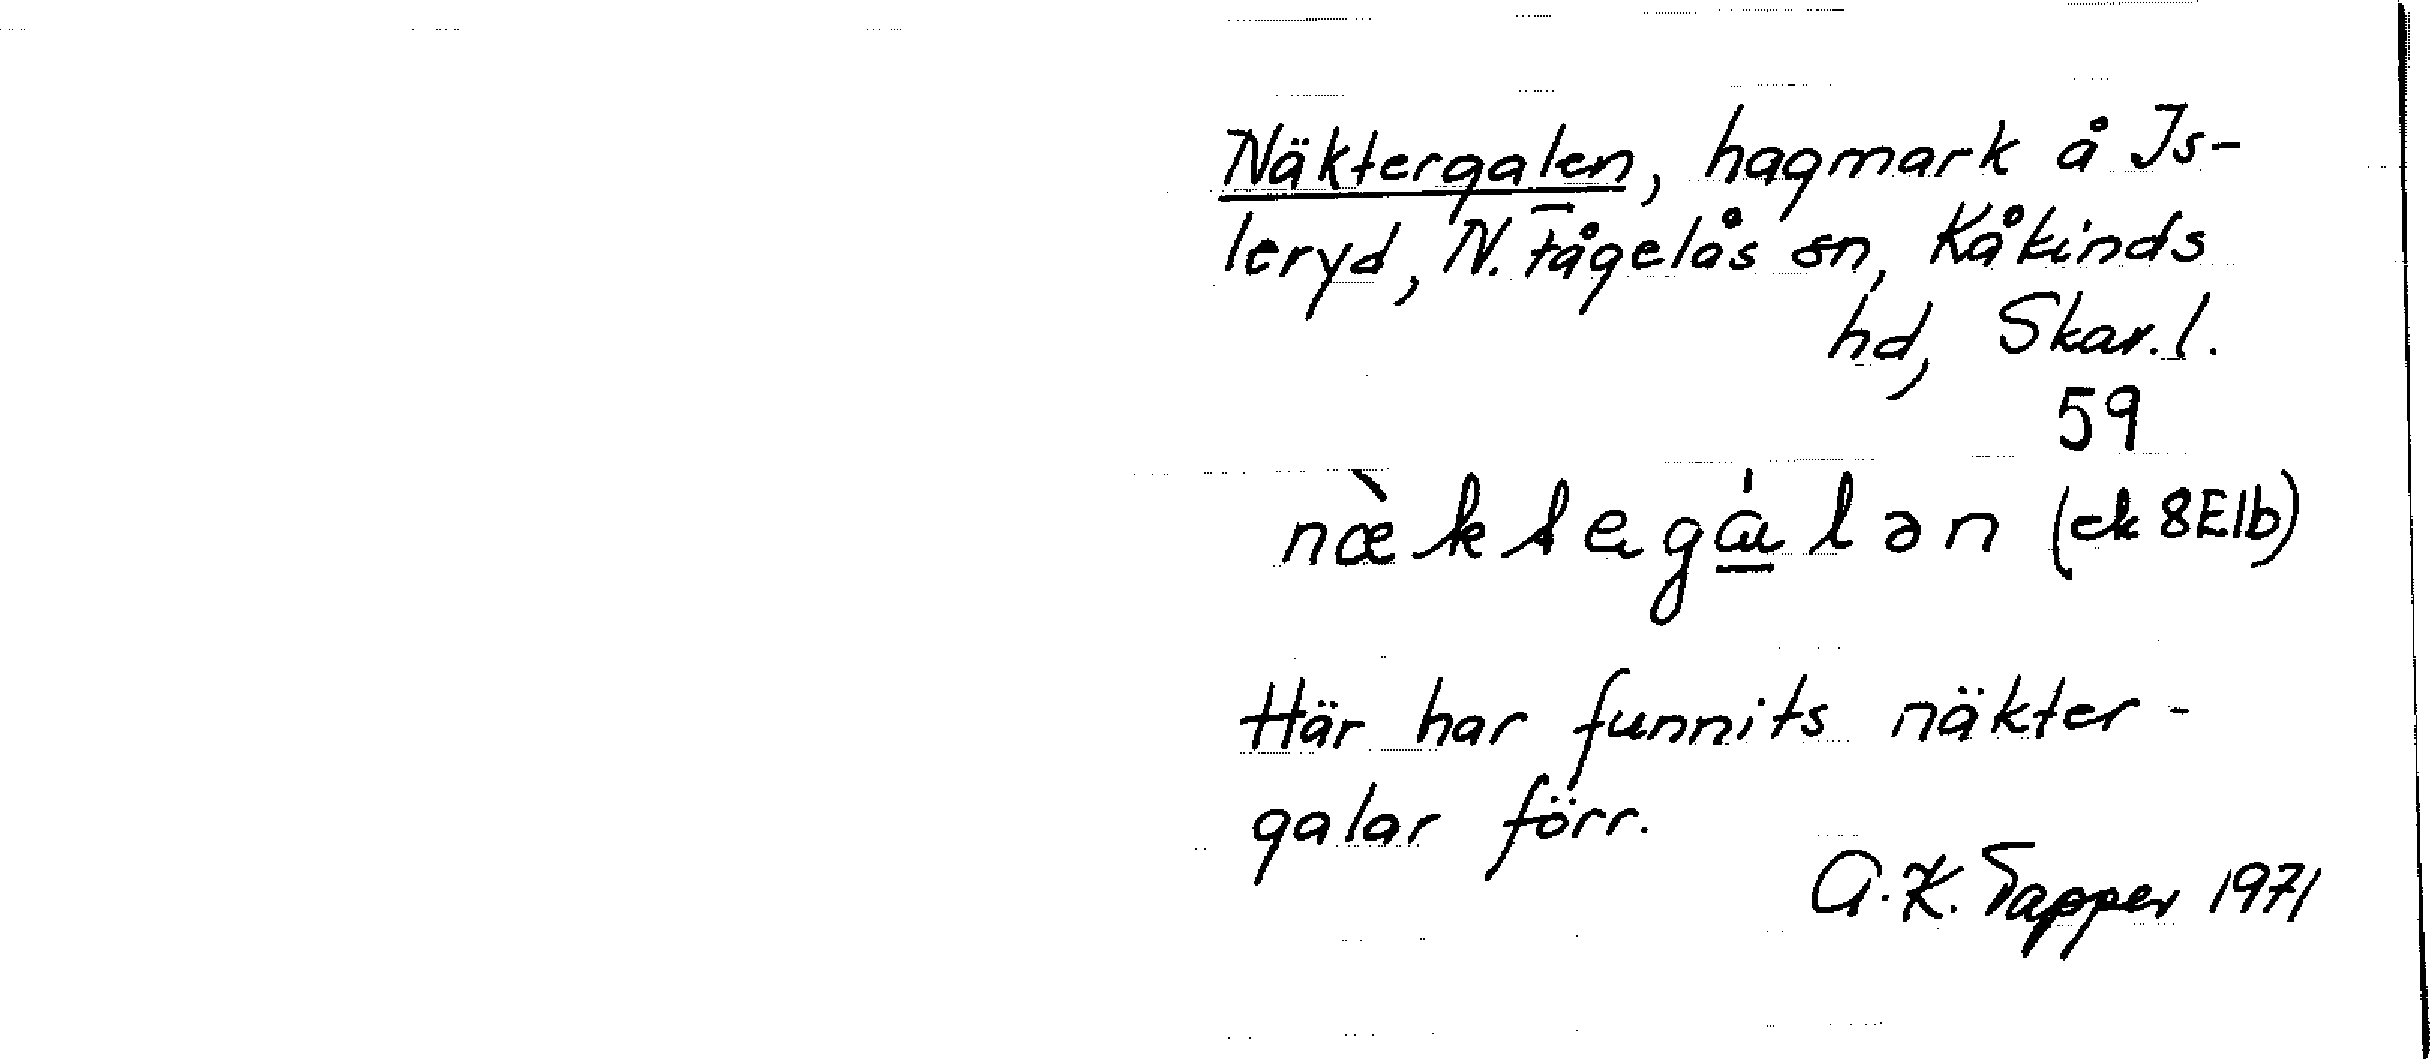 Näktergalen, hagmark å Is-
leryd, N. Fågelås sn, Kåkinds
hd, Skar. l.
59
næ̀ktegálən (ek 8E1b)
Här har funnits näkter-
galar förr.
A. K. Tapper 1971